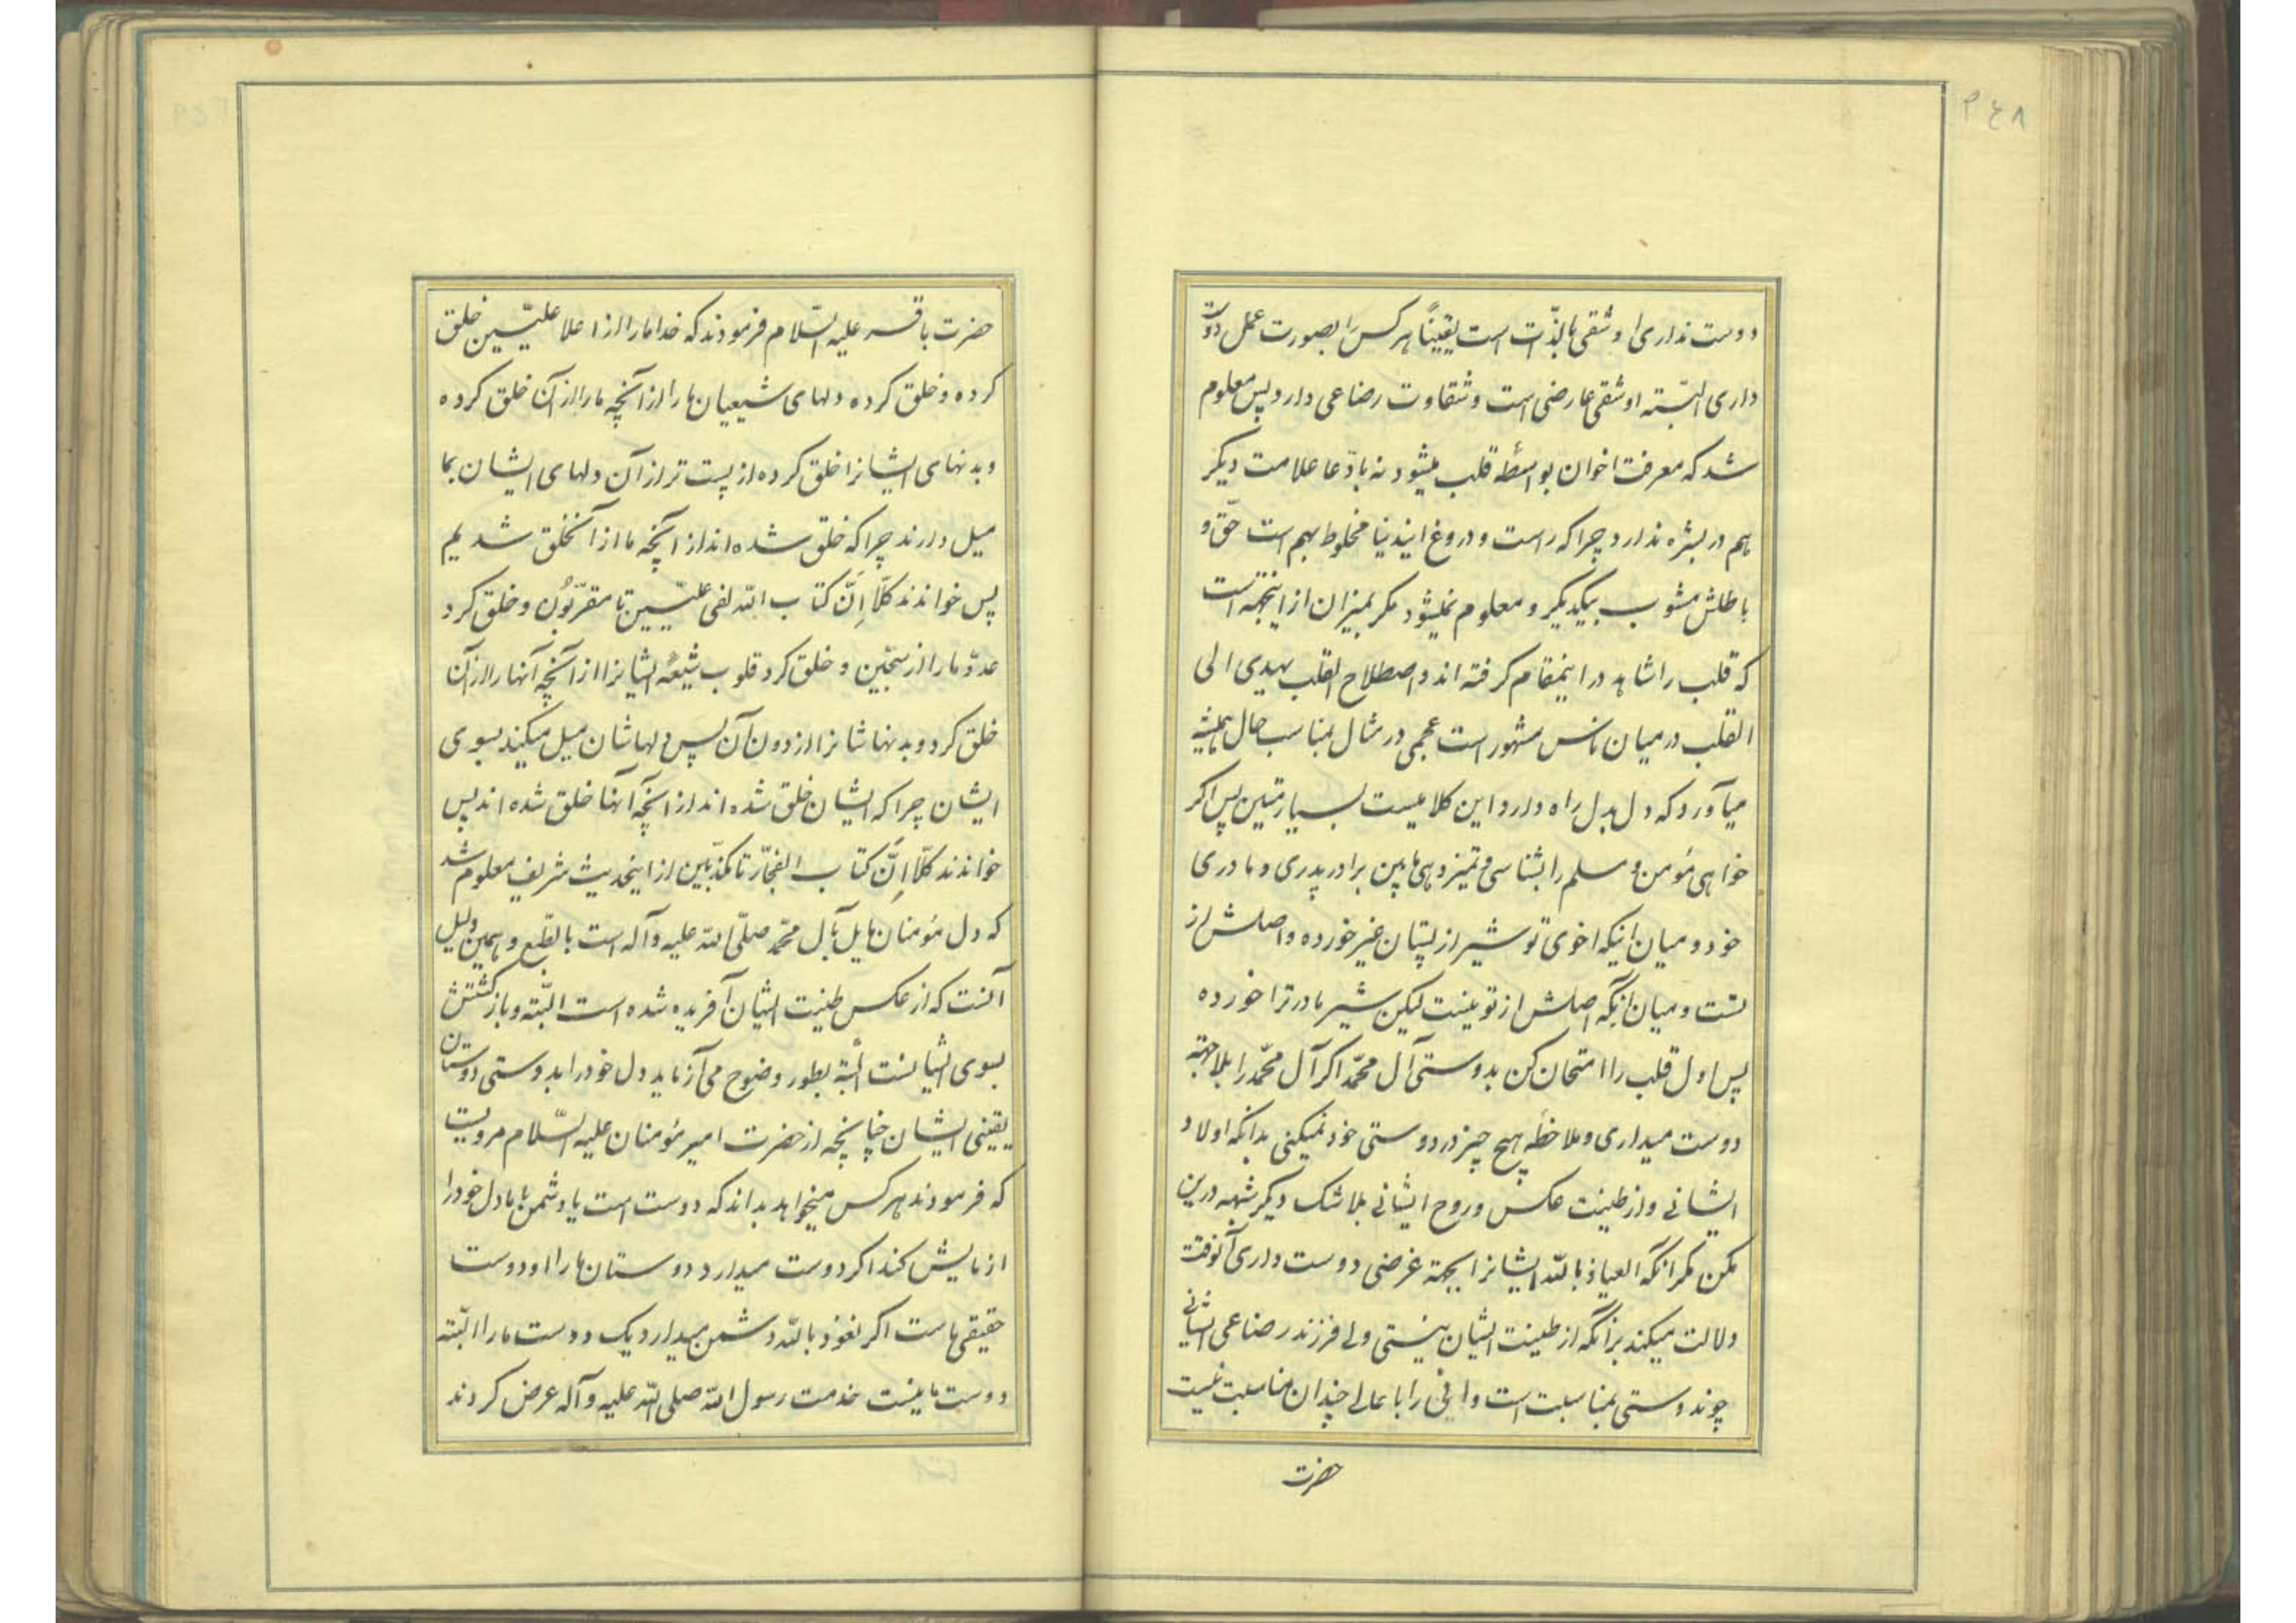 ۲۴۸
دوست نداری او شقی بالذّات است یقیناً هر کس را بصورت عمل دوست
داری البتّه او شقی عارضی است و شقاوت رضاعی دارد پس معلوم
شد که معرفت اخوان بواسطهٔ قلب میشود نه بادّعا علامت دیگر
هم در بشره ندارد چرا که راست و دروغ ایندنیا مخلوط بهم است حقّ و
باطلش مشوب بیکدیگر و معلوم نمیشود مگر بمیزان از اینجهة است
که قلب را شاهد در اینمقام گرفته اند و اصطلاح القلب یهدی الی
القلب در میان ناس مشهور است عجمی در مثال مناسب حال همیشه
میآورد که دل بدل راه دارد این کلامیست بسیار متین پس اگر
خواهی مؤمن و مسلم را بشناسی و تمیز دهی مابین برادر پدری و مادری
خود و میان اینکه اخوی تو شیر از پستان غیر خورده و اصلش از
تست و میان آنکه اصلش از تو نیست لیکن شیر مادر ترا خورده
پس اول قلب را امتحان کن بدوستی آل محمّد اگر آل محمّد را بلا جهة
دوست میداری و ملاحظهٔ هیچ چیز در دوستی خود نمیکنی بدانکه اولاد
ایشانی و از طینت عکس و روح ایشانی بلا شک دیگر شبهه درین
مکن مگر آنکه العیاذ بالله ایشانرا بجهة غرضی دوست داری آنوقت
دلالت میکند برآنکه از طینت ایشان نیستی ولی فرزند رضاعی ایشانی
چون دوستی بمناسبت است و ادنی را با عالی چندان مناسبت نیست
حضرت
حضرت باقر علیه السّلام فرمودند که خدا ما را از اعلا علیّین خلق
کرده و خلق کرده دلهای شیعیان ما را از آنچه ما را از آن خلق کرده
و بدنهای ایشانرا خلق کرده از پست تر از آن دلهای ایشان بما
میل دارند چرا که خلق شده اند از آنچه ما از آنخلق شدیم
پس خواندند کلّا إنّ کتاب الله لفی علیّین تا مقرّبون و خلق کرد
عدوّ ما را از سجّین و خلق کرد قلوب شیعهٔ ایشانرا از آنچه آنها را از آن
خلق کرد و بدنها شانرا از دون آن پس دلهاشان میل میکند بسوی
ایشان چرا که ایشان خلق شده اند از آنچه آنها خلق شده اند پس
خواندند کلّا إنّ کتاب الفجّار تا مکذّبین از اینحدیث شریف معلوم شد
که دل مؤمنان مایل بآل محمّد صلّی الله علیه و آله است بالطّبع و همین دلیل
آنست که از عکس طینت ایشان آفریده شده است البتّه و بازگشتش
بسوی ایشانست البتّة بطور وضوح می آزماید دل خود را بدوستی دوستان
یقینی ایشان چنانچه از حضرت امیر مؤمنان علیه السّلام مرویست
که فرمودند هر کس میخواهد بداند که دوست است یا دشمن با ما دل خود را
ازمایش کند اگر دوست میدارد دوستان ما را او دوست
حقیقی ماست اگر نعوذ بالله دشمن میدارد یک دوست ما را البتّه
دوست ما نیست خدمت رسول الله صلی الله علیه و آله عرض کردند